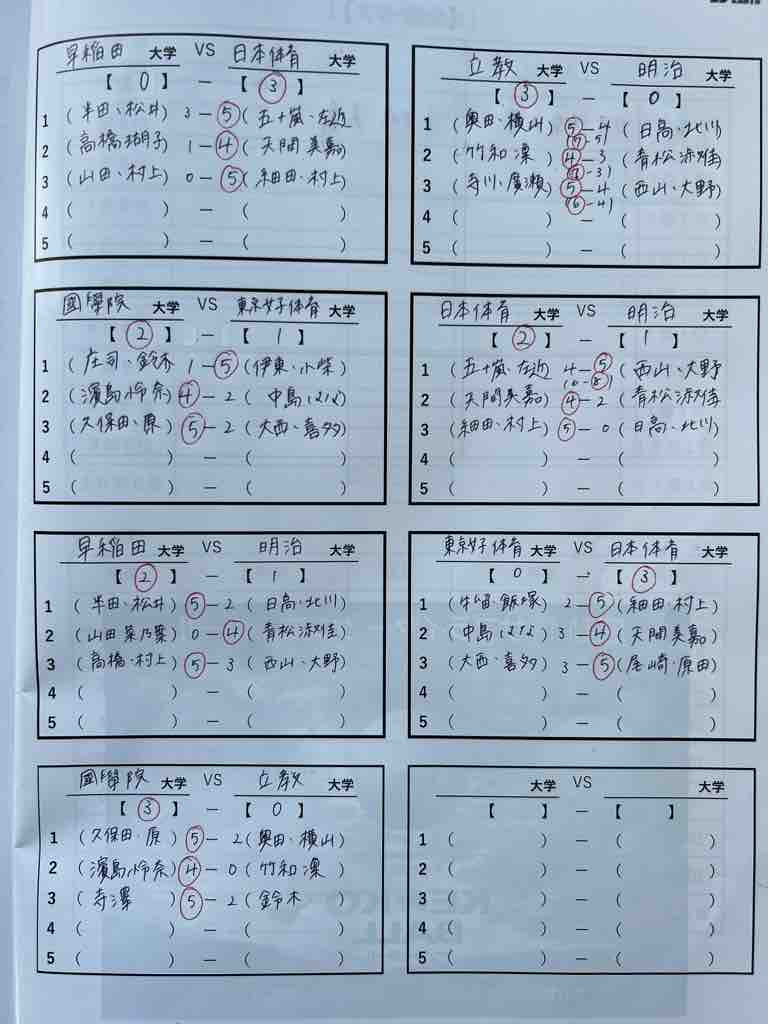 早稲田 大学 VS 日本体育 大学
【 0 】 － 【 3 】
1 (半田・松井) 3－5 (五十嵐・左近)
2 (高橋瑚子) 1－4 (天間美嘉)
3 (山田・村上) 0－5 (細田・村上)
4 ( ) － ( )
5 ( ) － ( )
立教 大学 VS 明治 大学
【 3 】 － 【 0 】
1 (奥田・横山) 5－4 (日高・北川)
(7－5)
2 (竹和凛) 4－3 (青松淑佳)
(7－3)
3 (寺川・廣瀬) 5－4 (西山・大野)
(6－4)
4 ( ) － ( )
5 ( ) － ( )
國學院 大学 VS 東京女子体育 大学
【 2 】 － 【 1 】
1 (庄司・鈴木) 1－5 (伊東・小柴)
2 (濱島怜奈) 4－2 (中島はな)
3 (久保田・原) 5－2 (大西・喜多)
4 ( ) － ( )
5 ( ) － ( )
日本体育 大学 VS 明治 大学
【 2 】 － 【 1 】
1 (五十嵐・左近) 4－5 (西山・大野)
(6－8)
2 (天間美嘉) 4－2 (青松淑佳)
3 (細田・村上) 5－0 (日高・北川)
4 ( ) － ( )
5 ( ) － ( )
早稲田 大学 VS 明治 大学
【 2 】 － 【 1 】
1 (半田・松井) 5－2 (日高・北川)
2 (山田菜乃葉) 0－4 (青松淑佳)
3 (高橋・村上) 5－3 (西山・大野)
4 ( ) － ( )
5 ( ) － ( )
東京女子体育 大学 VS 日本体育 大学
【 0 】 － 【 3 】
1 (飯塚) 2－5 (細田・村上)
2 (中島はな) 3－4 (天間美嘉)
3 (大西・喜多) 3－5 (尾崎・原田)
4 ( ) － ( )
5 ( ) － ( )
國學院 大学 VS 立教 大学
【 3 】 － 【 0 】
1 (久保田・原) 5－2 (奥田・横山)
2 (濱島怜奈) 4－0 (竹和凛)
3 (寺澤 ) 5－2 (鈴木 )
4 ( ) － ( )
5 ( ) － ( )
大学 VS 大学
【 】 － 【 】
1 ( ) － ( )
2 ( ) － ( )
3 ( ) － ( )
4 ( ) － ( )
5 ( ) － ( )